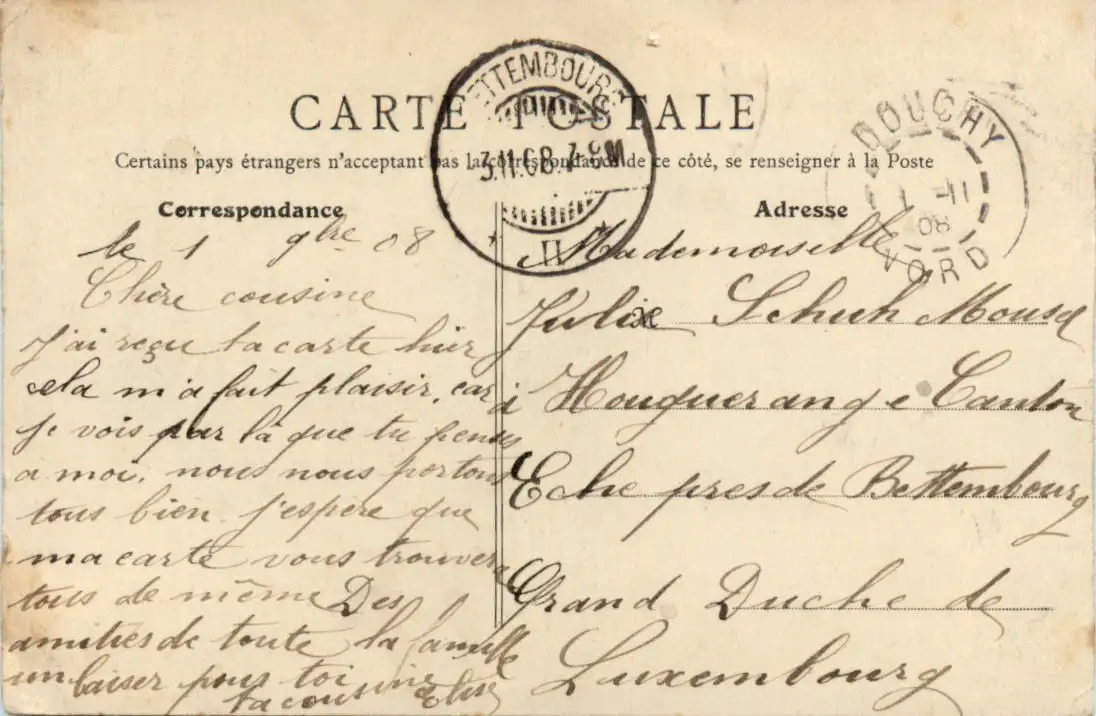 CARTE POSTALE
Certains pays étrangers n'acceptent pas la correspondance de ce côté, se renseigner à la Poste
BETTEMBOURG
3.11.08.7-8
II
DOUCHY
1 -11
08
NORD
Correspondance
le 1 9bre 08
Chère cousine
J'ai reçu ta carte hier
cela m'a fait plaisir, car
je vois par là que tu penses
a moi. nous nous portons
tous bien. j'espère que
ma carte vous trouvera
tous de même Des
amitiés de toute la famille
un baiser pour toi
ta cousine Elise
Adresse
Mademoiselle
Schuh Mousel
à Houquerange Canton
Eche pres de Bettembourg
Grand Duche de
Luxembourg